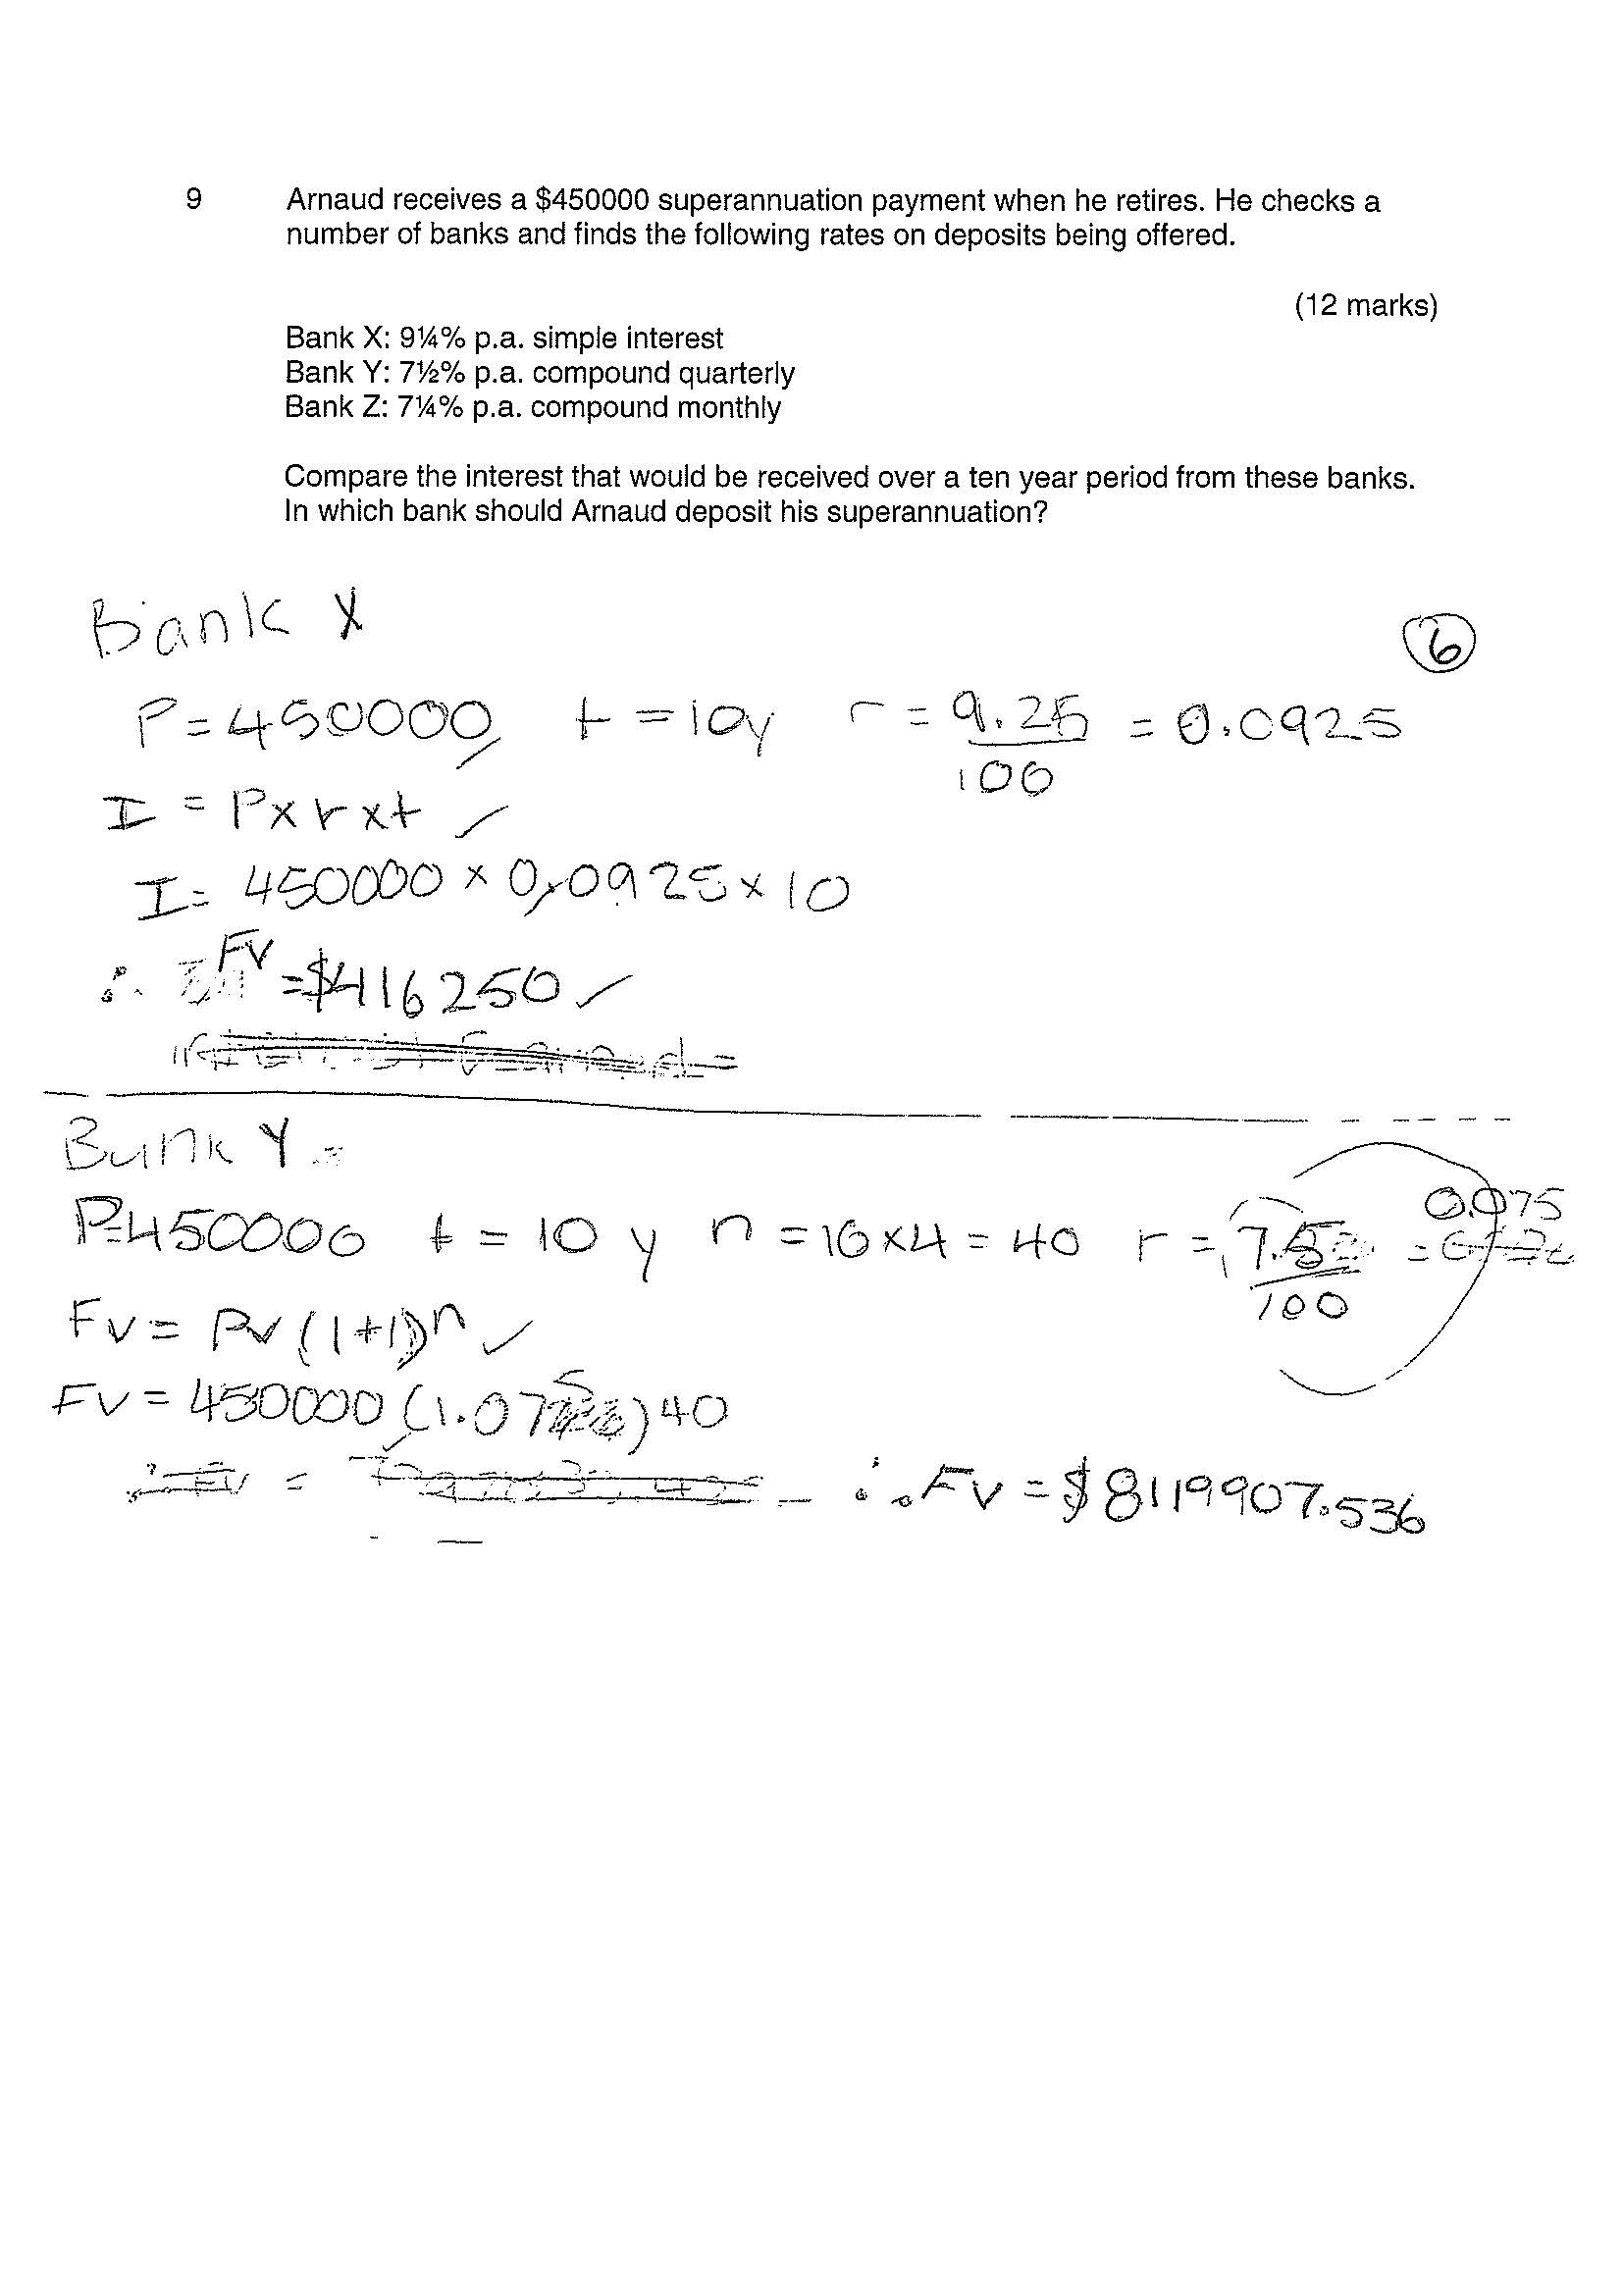 9 Arnaud receives a $450000 superannuation payment when he retires. He checks a
number of banks and finds the following rates on deposits being offered.
(12 marks)
Bank X: 9¼% p.a. simple interest
Bank Y: 7½% p.a. compound quarterly
Bank Z: 7¼% p.a. compound monthly
Compare the interest that would be received over a ten year period from these banks.
In which bank should Arnaud deposit his superannuation?
Bank X
6
P=450000 t=10y r = 9.25/100 = 0.0925
I = P×r×t ✓
I = 450000 × 0.0925 × 10
∴ FV = $416250 ✓
Bank Y
P=450000 t = 10 y n = 10×4 = 40 r = 7.5/100 = 0.075
FV = PV (1+i)n ✓
FV = 450000 (1.075)40
∴ FV = $8119907.536